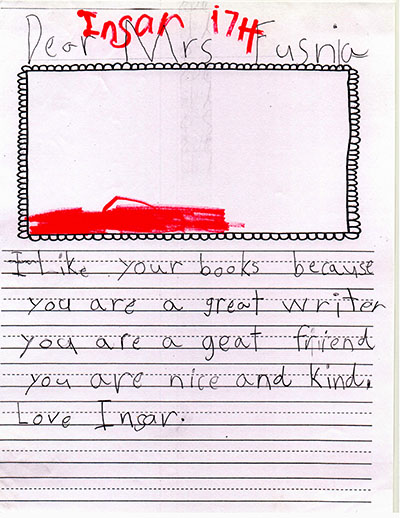 Insar i7H
Dear Mrs Fusnia
I Like your books because
you are a great writer
you are a geat friend
you are nice and kind.
Love Insar.